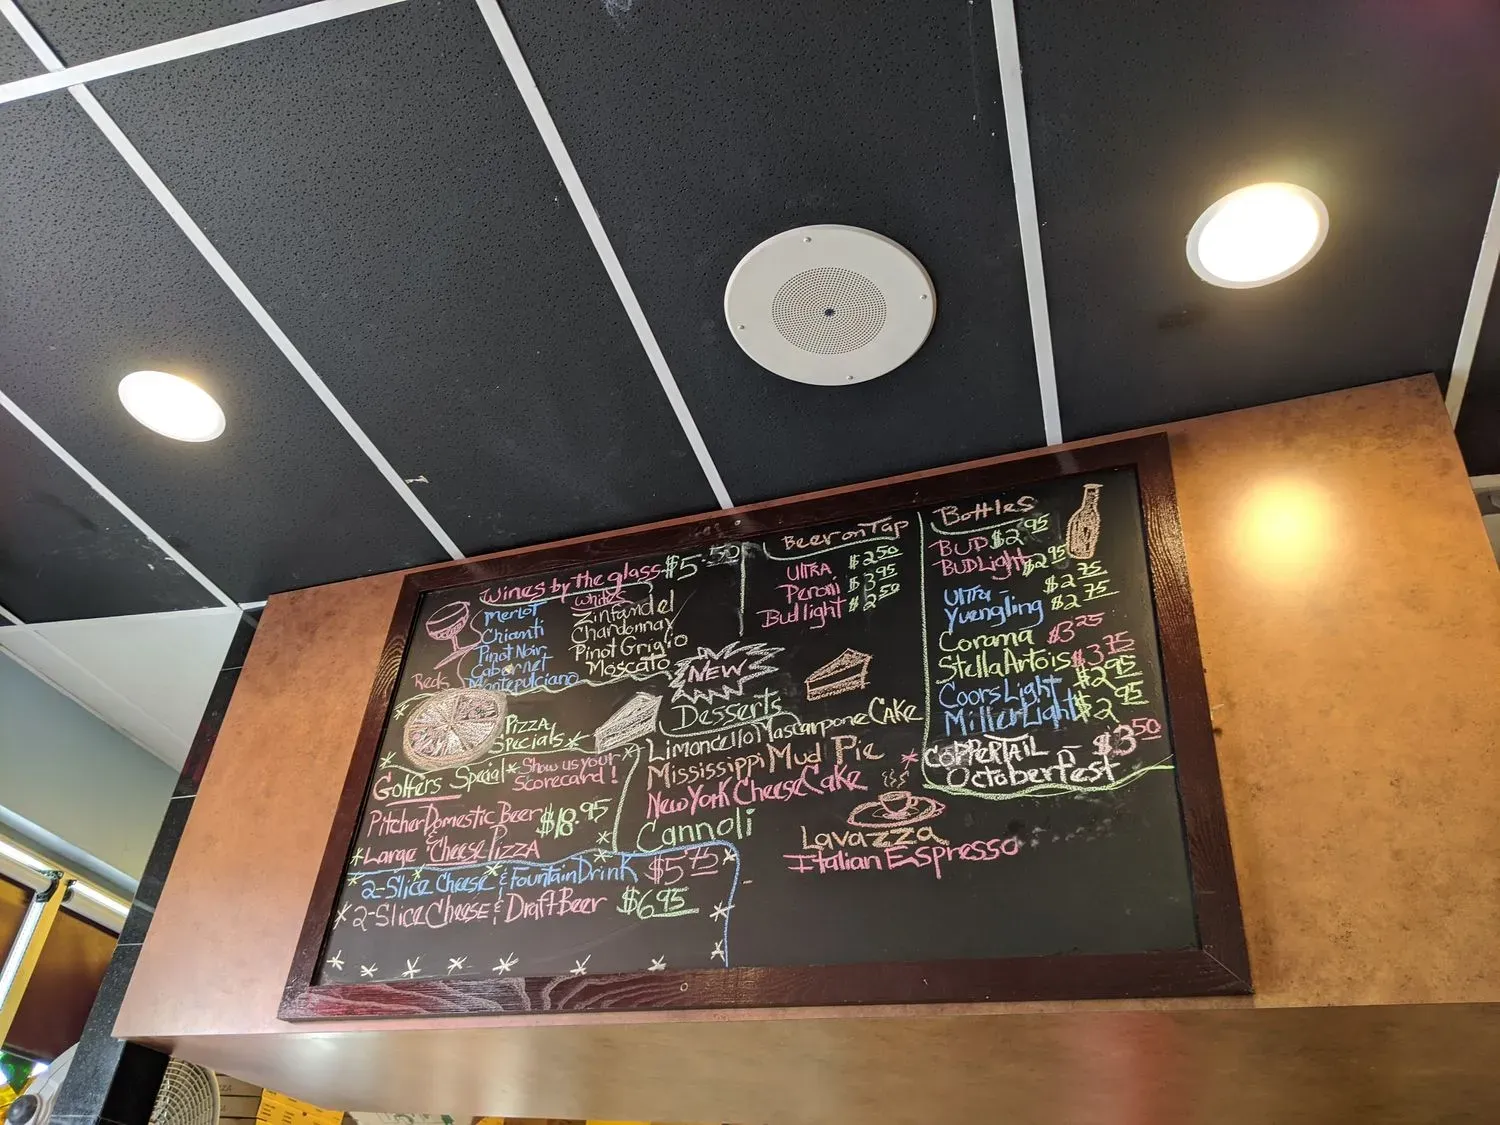 Wines by the glass $5.50
Reds
Merlot
Chianti
Pinot Noir
Cabernet
Montepulciano
Whites
Zinfandel
Chardonnay
Pinot Grigio
Moscato
Beer on Tap
Ultra $2.50
Peroni $3.95
Bud light $2.50
Bottles
BUD $2.95
BUD Light $2.95
Ultra - $2.75
Yuengling $2.75
Corama $3.25
Stella Artois $3.75
Coors Light $2.95
Miller Light $2.95
COPPERTAIL - $3.50
Octoberfest
NEW
Desserts
Limoncello Mascarpone CAKE
Mississippi Mud Pie
New York Cheese Cake
Cannoli
Lavazza
Italian Espresso
PIZZA
Specials
Golfers Special * Show us your
Scorecard!
Pitcher Domestic Beer $18.95
&
*Large Cheese Pizza
2-Slice Cheese & Fountain Drink $5.75
2-Slice Cheese & Draft Beer $6.95